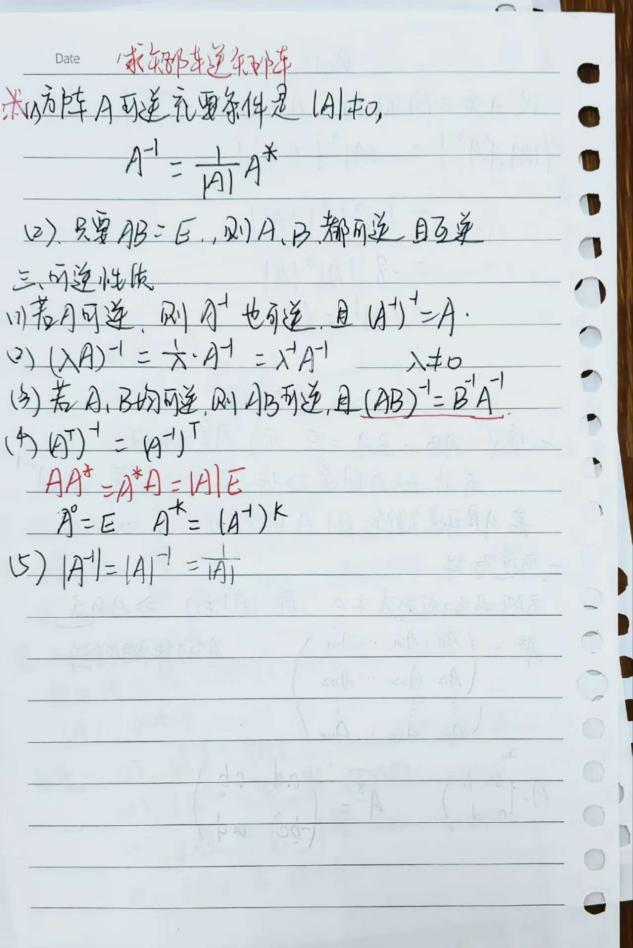 Date 求矩阵逆矩阵
※(1)方阵A可逆充要条件是|A|≠0,
A⁻¹ = 1/|A| A*
(2)、只要AB=E,,则A、B都可逆 且互逆
三、可逆性质
(1)若A可逆, 则A⁻¹也可逆,且(A⁻¹)⁻¹=A.
(2) (λA)⁻¹ = 1/λ·A⁻¹ = λ⁻¹A⁻¹ λ≠0
(3)若A、B均可逆,则AB可逆,且(AB)⁻¹=B⁻¹A⁻¹.
(4) (Aᵀ)⁻¹ = (A⁻¹)ᵀ
AA*=A*A=|A|E
A⁰=E A⁻ᵏ=(A⁻¹)ᵏ
(5) |A⁻¹|=|A|⁻¹ = 1/|A|